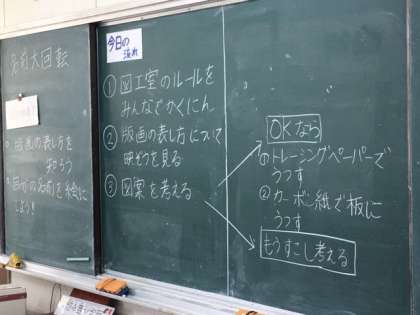 名前大回転
・版画の表し方を
知ろう
・自分の名前を絵に
しよう!
今日の
流れ
① 図工室のルールを
みんなでかくにん
② 版画の表し方について
映ぞうを見る
③ 図案を考える
OKなら
① トレーシングペーパーで
うつす
② カーボン紙で板に
うつす
もうすこし考える